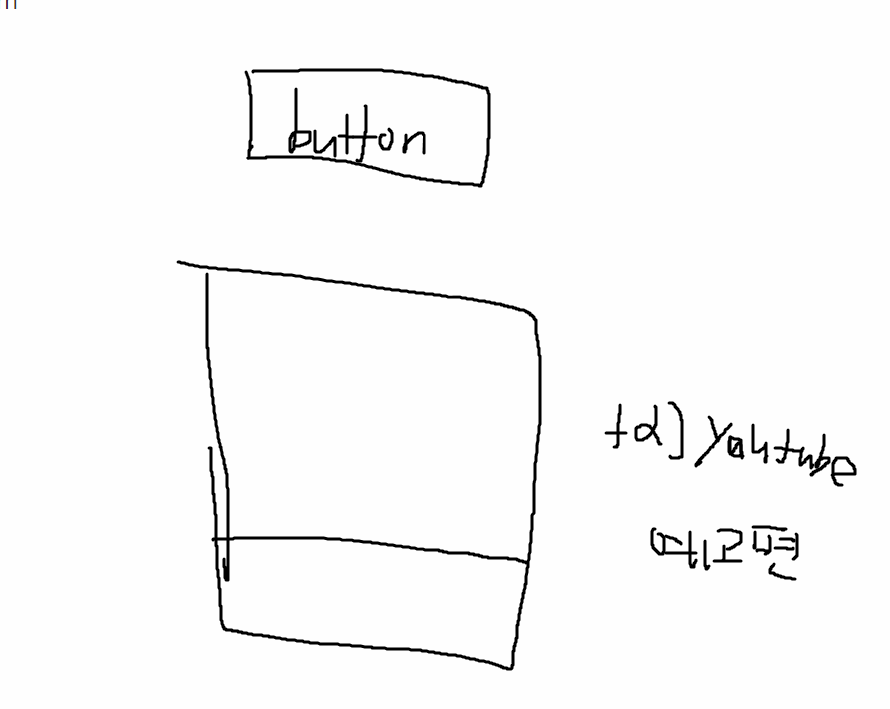 button
youtube
예고편